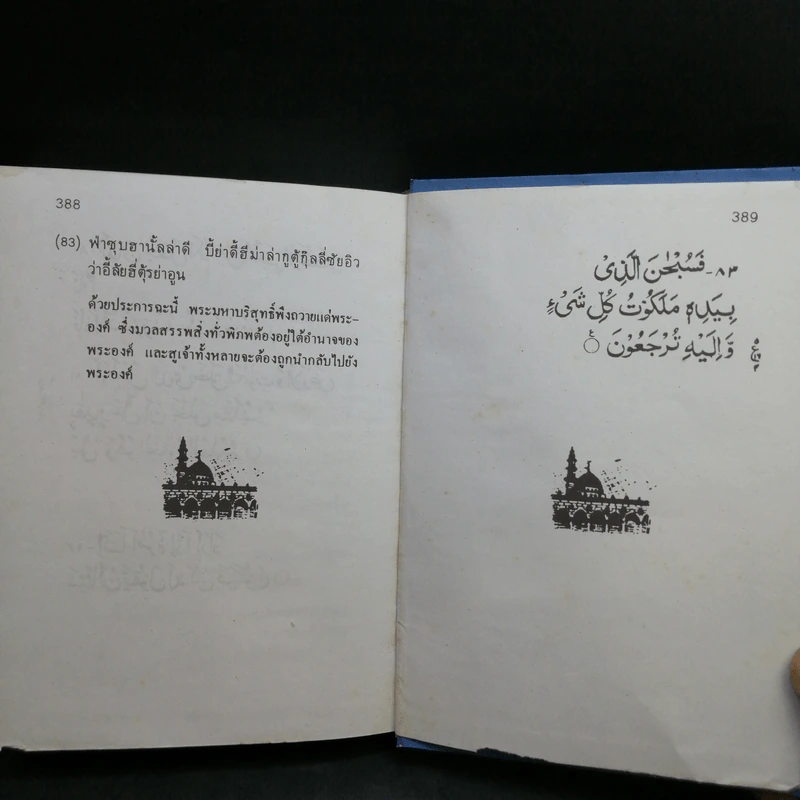 388
(83) ฟ่าซุบฮานั้ลล่าดี บี้ย่าดี้ฮีม่าล่ากูตู้กุ๊ลลี่ซัยอิว
ว่าอี้ลัยฮี่ตุ้รย่าอูน
ด้วยประการฉะนี้ พระมหาบริสุทธิ์พึงถวายแด่พระ-
องค์ ซึ่งมวลสรรพสิ่งทั่วพิภพต้องอยู่ใต้อำนาจของ
พระองค์ และสูเจ้าทั้งหลายจะต้องถูกนำกลับไปยัง
พระองค์
389
٨٣- فَسُبْحٰنَ الَّذِىْ
بِيَدِهٖ مَلَكُوْتُ كُلِّ شَىْءٍ
وَّاِلَيْهِ تُرْجَعُوْنَ